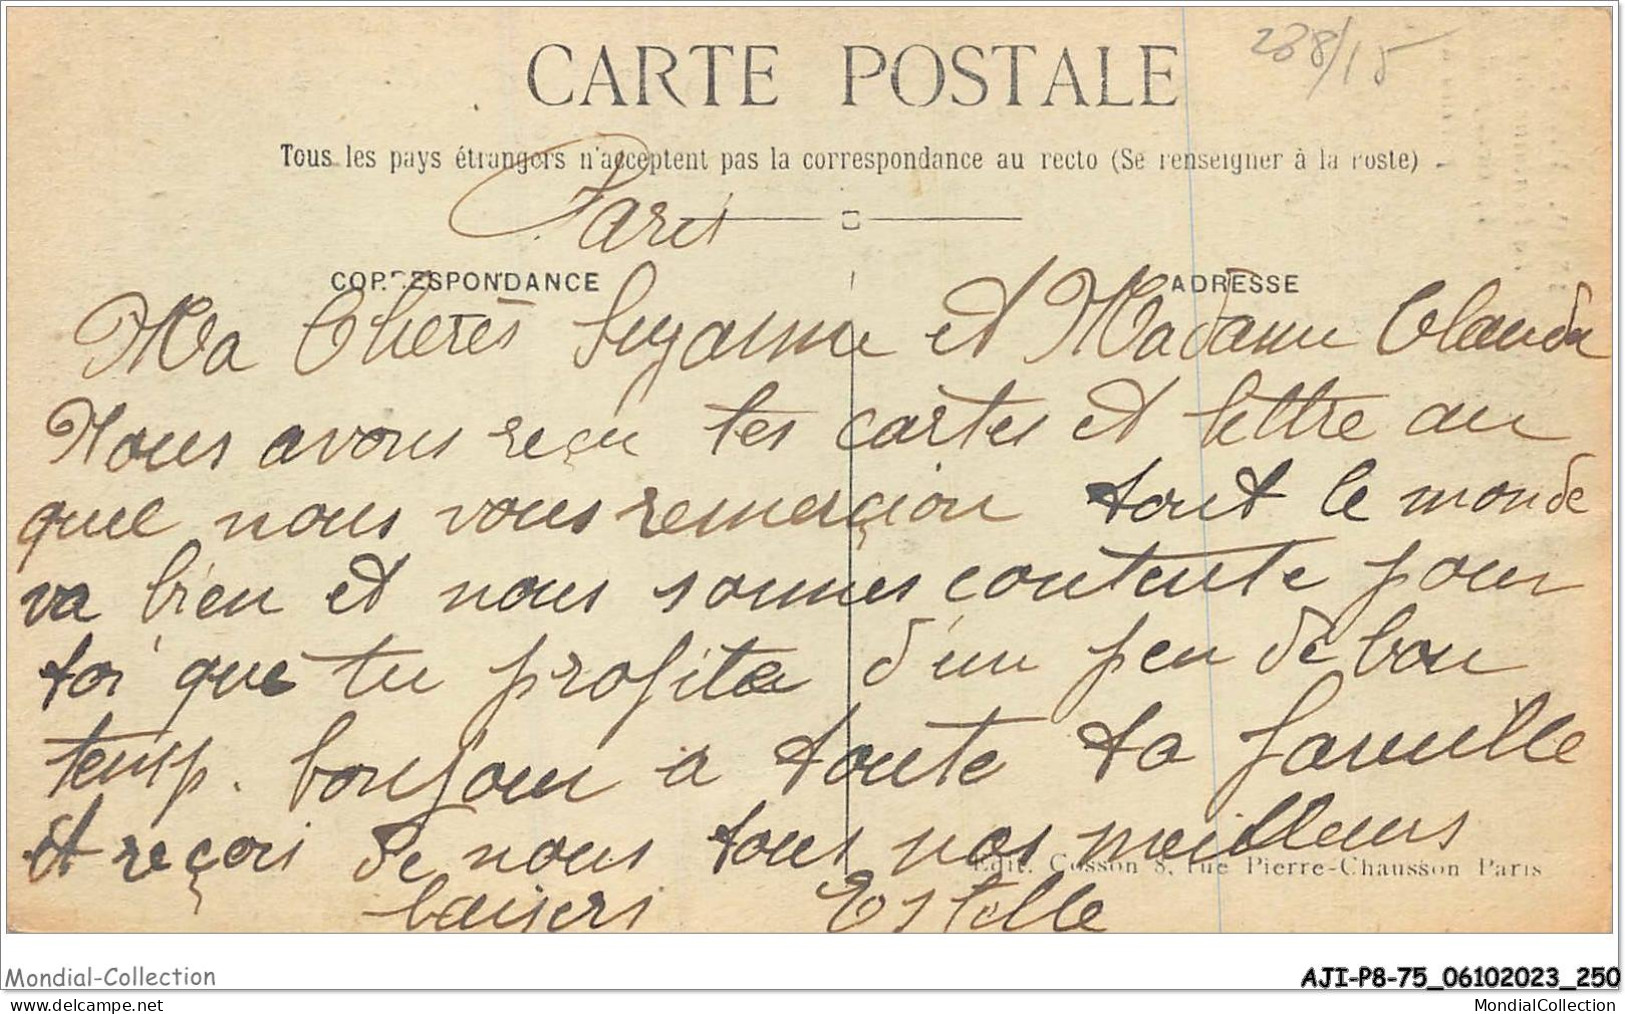 238/15
CARTE POSTALE
Tous les pays étrangers n'acceptent pas la correspondance au recto (Se renseigner à la Poste)
Paris
CORRESPONDANCE
ADRESSE
Ma Cherès Suzanne et Madame Claudu
Nous avons reçu tes cartes et lettre au
quel nous vous remerçion tout le monde
va bien et nous sommes contente pour
toi que tu profite d'un peu de bon
temp. bonjour a toute ta famille
et reçois de nous tous nos meilleurs
Edit. Cosson 8, rue Pierre-Chausson Paris
baisers Estelle
Mondial-Collection
AJI-P8-75_06102023_250
www.delcampe.net
MondialCollection